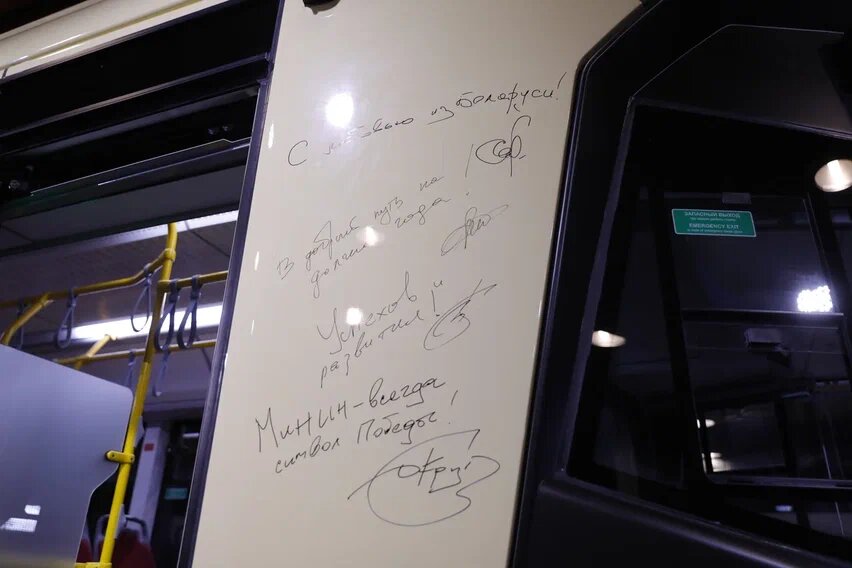 С любовью из Беларуси!
В добрый путь на
долгие года!
Успехов и
развития!
Минин-всегда
символ Победы!
ЗАПАСНЫЙ ВЫХОД
EMERGENCY EXIT